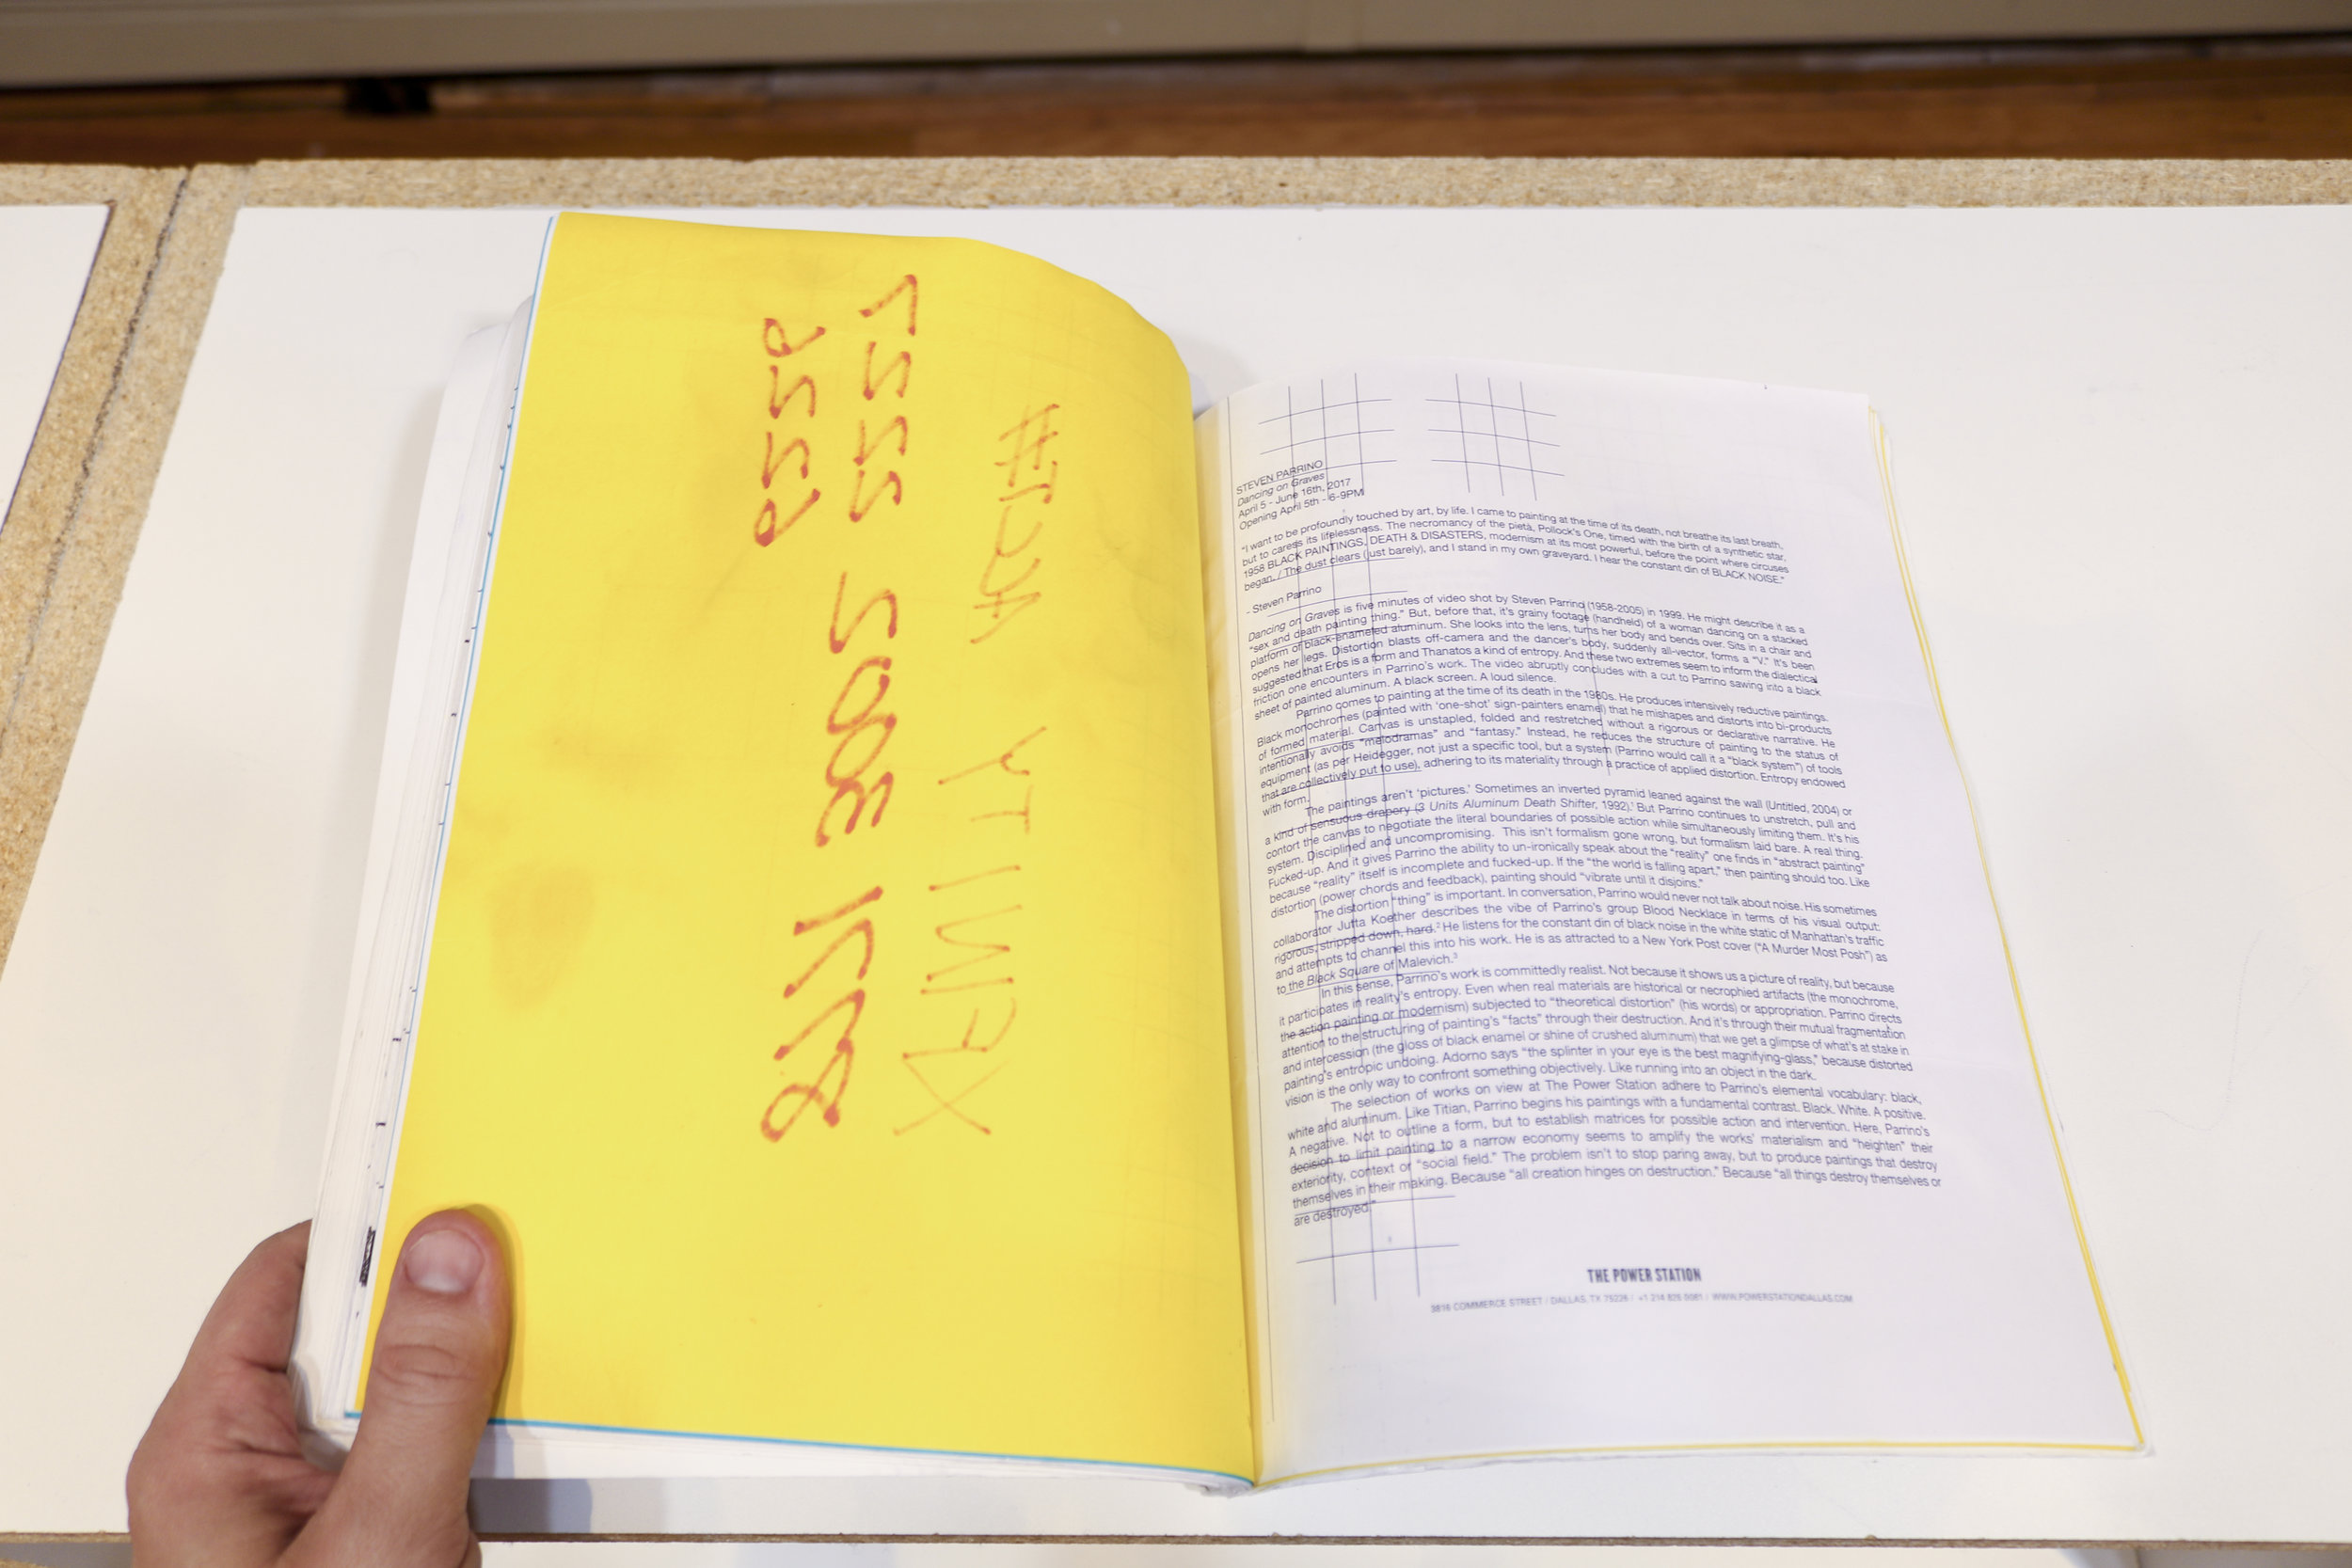 STEVEN PARRINO
Dancing on Graves
April 5 - June 16th, 2017
Opening April 5th - 6-9PM
"I want to be profoundly touched by art, by life. I came to painting at the time of its death, not breathe its last breath,
but to caress its lifelessness. The necromancy of the pietà, Pollock's One, timed with the birth of a synthetic star,
1958 BLACK PAINTINGS, DEATH & DISASTERS, modernism at its most powerful, before the point where circuses
began. / The dust clears (just barely), and I stand in my own graveyard. I hear the constant din of BLACK NOISE."
- Steven Parrino
Dancing on Graves is five minutes of video shot by Steven Parrino (1958-2005) in 1999. He might describe it as a
"sex and death painting thing." But, before that, it's grainy footage (handheld) of a woman dancing on a stacked
platform of black-enameled aluminum. She looks into the lens, turns her body and bends over. Sits in a chair and
opens her legs. Distortion blasts off-camera and the dancer's body, suddenly all-vector, forms a "V." It's been
suggested that Eros is a form and Thanatos a kind of entropy. And these two extremes seem to inform the dialectical
friction one encounters in Parrino's work. The video abruptly concludes with a cut to Parrino sawing into a black
sheet of painted aluminum. A black screen. A loud silence.
Parrino comes to painting at the time of its death in the 1980s. He produces intensively reductive paintings.
Black monochromes (painted with 'one-shot' sign-painters enamel) that he mishapes and distorts into bi-products
of formed material. Canvas is unstapled, folded and restretched without a rigorous or declarative narrative. He
intentionally avoids "melodramas" and "fantasy." Instead, he reduces the structure of painting to the status of
equipment (as per Heidegger, not just a specific tool, but a system (Parrino would call it a "black system") of tools
that are collectively put to use), adhering to its materiality through a practice of applied distortion. Entropy endowed
with form.
The paintings aren't 'pictures.' Sometimes an inverted pyramid leaned against the wall (Untitled, 2004) or
a kind of sensuous drapery (3 Units Aluminum Death Shifter, 1992).¹ But Parrino continues to unstretch, pull and
contort the canvas to negotiate the literal boundaries of possible action while simultaneously limiting them. It's his
system. Disciplined and uncompromising. This isn't formalism gone wrong, but formalism laid bare. A real thing.
Fucked-up. And it gives Parrino the ability to un-ironically speak about the "reality" one finds in "abstract painting"
because "reality" itself is incomplete and fucked-up. If the "the world is falling apart," then painting should too. Like
distortion (power chords and feedback), painting should "vibrate until it disjoins."
The distortion "thing" is important. In conversation, Parrino would never not talk about noise. His sometimes
collaborator Jutta Koether describes the vibe of Parrino's group Blood Necklace in terms of his visual output:
rigorous, stripped down, hard.² He listens for the constant din of black noise in the white static of Manhattan's traffic
and attempts to channel this into his work. He is as attracted to a New York Post cover ("A Murder Most Posh") as
to the Black Square of Malevich.³
In this sense, Parrino's work is committedly realist. Not because it shows us a picture of reality, but because
it participates in reality's entropy. Even when real materials are historical or necrophied artifacts (the monochrome,
the action painting or modernism) subjected to "theoretical distortion" (his words) or appropriation. Parrino directs
attention to the structuring of painting's "facts" through their destruction. And it's through their mutual fragmentation
and intercession (the gloss of black enamel or shine of crushed aluminum) that we get a glimpse of what's at stake in
painting's entropic undoing. Adorno says "the splinter in your eye is the best magnifying-glass," because distorted
vision is the only way to confront something objectively. Like running into an object in the dark.
The selection of works on view at The Power Station adhere to Parrino's elemental vocabulary: black,
white and aluminum. Like Titian, Parrino begins his paintings with a fundamental contrast. Black. White. A positive.
A negative. Not to outline a form, but to establish matrices for possible action and intervention. Here, Parrino's
decision to limit painting to a narrow economy seems to amplify the works' materialism and "heighten" their
exteriority, context or "social field." The problem isn't to stop paring away, but to produce paintings that destroy
themselves in their making. Because "all creation hinges on destruction." Because "all things destroy themselves or
are destroyed."
THE POWER STATION
3816 COMMERCE STREET / DALLAS, TX 75226 / +1 214 826 0081 / WWW.POWERSTATIONDALLAS.COM